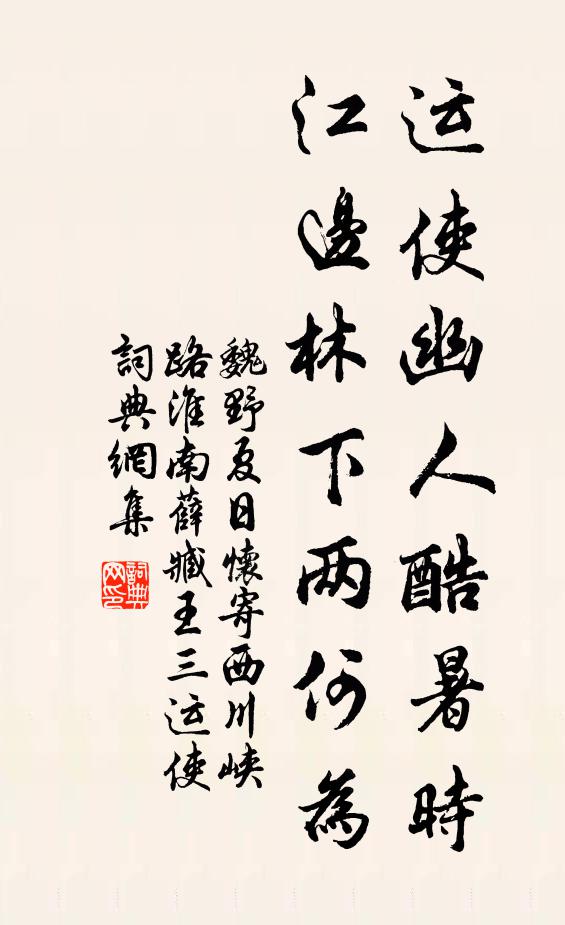 运使幽人酷暑時
江邊林下两何為
魏野夏日懷寄西川峽
路淮南薛臧王三运使
詞典網集
詞典
网印